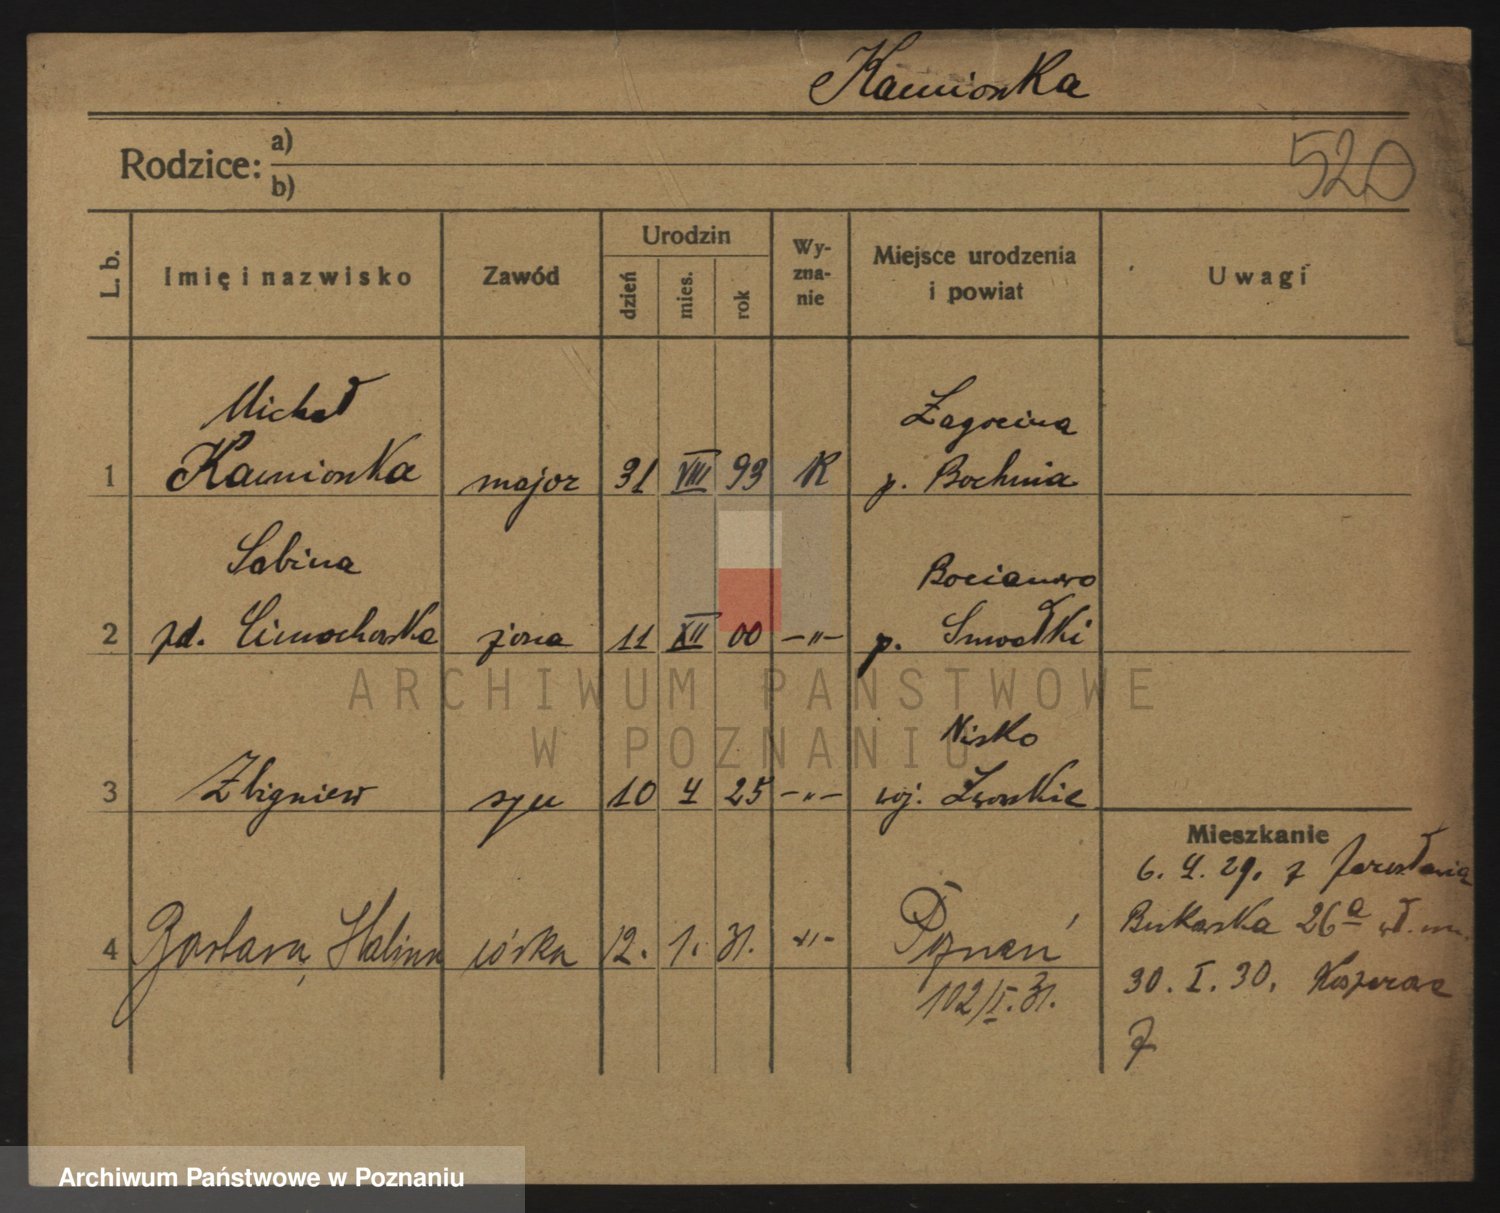 Kamionka
520
Rodzice: a)
b)
L. b.
Imię i nazwisko
Zawód
Urodzin
dzień
mies.
rok
Wy-
zna-
nie
Miejsce urodzenia
i powiat
Uwagi
Michał
Zagocina
1 Kamionka major 31 VIII 93 R p. Bochnia
Sabina
Bocianowo
2 zd. Cimochowska żona 11 XII 00 —"— p. Suwałki
Nisko
3 Zbigniew syn 10 4 25 —"— woj. Lwowskie
Mieszkanie
6. 4. 29. z Jarosławia
Bukowska 26a wł. m.
4 Barbara, Halina córka 12. 1. 31. —"— Poznań
30. I. 30.
102/I. 31.
7
ARCHIWUM PAŃSTWOWE
W POZNANIU
Archiwum Państwowe w Poznaniu